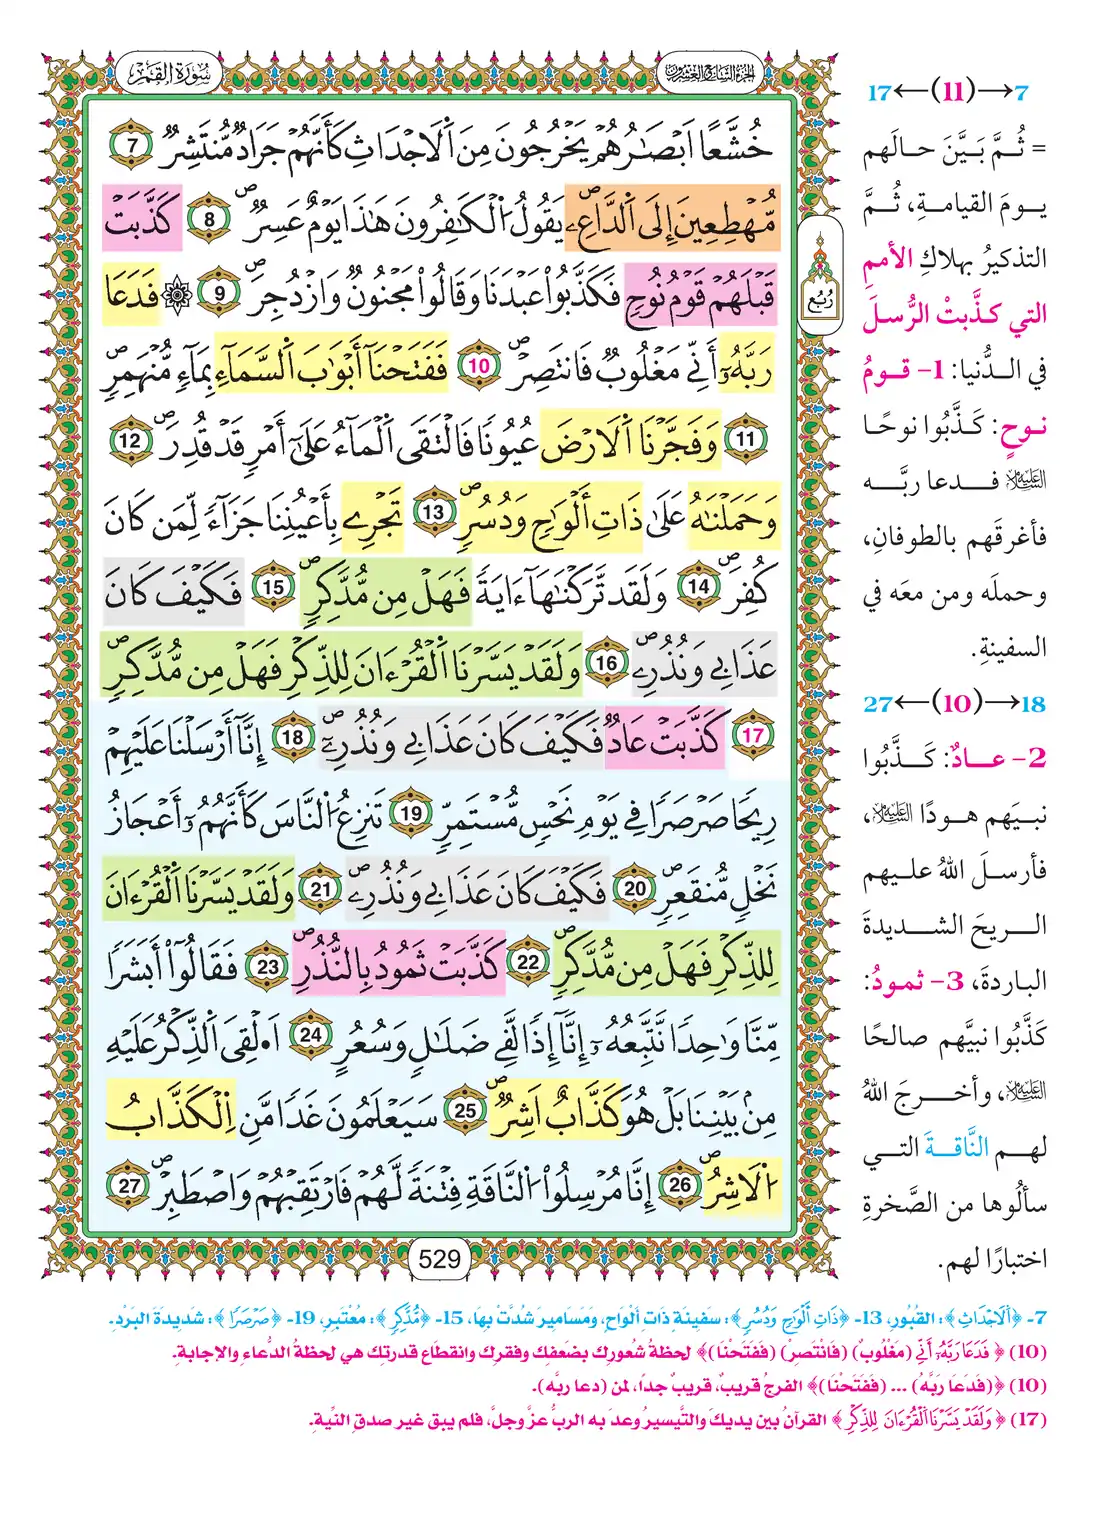 سُورَةُ القَمَر
الجزء السابع والعشرون
خُشَّعًا اَبْصَٰرُهُمْ يَخْرُجُونَ مِنَ اَ۬لَاجْدَاثِ كَأَنَّهُمْ جَرَادٞ مُّنتَشِرٞ 7
مُّهْطِعِينَ إِلَى اَ۬لدَّاعِۦ يَقُولُ اُ۬لْكَٰفِرُونَ هَٰذَا يَوْمٌ عَسِرٞ 8 كَذَّبَتْ
قَبْلَهُمْ قَوْمُ نُوحٖ فَكَذَّبُواْ عَبْدَنَا وَقَالُواْ مَجْنُونٞ وَازْدُجِرَ 9 ۞ فَدَعَا
رُبُع
رَبَّهُۥٓ أَنِّے مَغْلُوبٞ فَانتَصِرْ 10 فَفَتَحْنَآ أَبْوَٰبَ اَ۬لسَّمَآءِ بِمَآءٖ مُّنْهَمِرٖ
11 وَفَجَّرْنَا اَ۬لَارْضَ عُيُونٗا فَالْتَقَى اَ۬لْمَآءُ عَلَىٰٓ أَمْرٖ قَدْ قُدِرَ 12
وَحَمَلْنَٰهُ عَلَىٰ ذَاتِ أَلْوَٰحٖ وَدُسُرٖ 13 تَجْرِے بِأَعْيُنِنَا جَزَآءٗ لِّمَن كَانَ
كُفِرَ 14 وَلَقَد تَّرَكْنَٰهَآ ءَايَةٗ فَهَلْ مِن مُّدَّكِرٖ 15 فَكَيْفَ كَانَ
عَذَابِے وَنُذُرِۦ 16 وَلَقَدْ يَسَّرْنَا اَ۬لْقُرْءَانَ لِلذِّكْرِ فَهَلْ مِن مُّدَّكِرٖ
17 كَذَّبَتْ عَادٞ فَكَيْفَ كَانَ عَذَابِے وَنُذُرِۦٓ 18 إِنَّآ أَرْسَلْنَا عَلَيْهِمْ
رِيحٗا صَرْصَرٗا فِے يَوْمِ نَحْسٖ مُّسْتَمِرّٖ 19 تَنزِعُ اُ۬لنَّاسَ كَأَنَّهُمُۥٓ أَعْجَازُ
نَخْلٖ مُّنقَعِرٖ 20 فَكَيْفَ كَانَ عَذَابِے وَنُذُرِۦ 21 وَلَقَدْ يَسَّرْنَا اَ۬لْقُرْءَانَ
لِلذِّكْرِ فَهَلْ مِن مُّدَّكِرٖ 22 كَذَّبَتْ ثَمُودُ بِالنُّذُرِ 23 فَقَالُوٓاْ أَبَشَرٗا
مِّنَّا وَٰحِدٗا نَّتَّبِعُهُۥٓ إِنَّآ إِذٗا لَّفِے ضَلَٰلٖ وَسُعُرٍ 24 اَ۟لْقِيَ اَ۬لذِّكْرُ عَلَيْهِ
مِنۢ بَيْنِنَا بَلْ هُوَ كَذَّابٌ اَشِرٞ 25 سَيَعْلَمُونَ غَدٗا مَّنِ اِ۬لْكَذَّابُ
اُ۬لَاشِرُ 26 إِنَّا مُرْسِلُواْ اُ۬لنَّاقَةِ فِتْنَةٗ لَّهُمْ فَارْتَقِبْهُمْ وَاصْطَبِرْ 27
529
17←(11)→7
= ثُمَّ بَيَّنَ حالَهم
يومَ القيامةِ، ثُمَّ
التذكيرُ بهلاكِ الأممِ
التي كذَّبتْ الرُّسلَ
في الدُّنيا: 1- قومُ
نوحٍ: كَذَّبُوا نوحًا
عليه السلام فدعا ربَّه
فأغرقَهم بالطوفانِ،
وحملَه ومن معَه في
السفينةِ.
27←(10)→18
2- عادٌ: كَذَّبُوا
نبيَهم هودًا عليه السلام،
فأرسلَ اللهُ عليهم
الريحَ الشديدةَ
الباردةَ، 3- ثمودُ:
كَذَّبُوا نبيَّهم صالحًا
عليه السلام، وأخرجَ اللهُ
لهم النَّاقةَ التي
سألُوها من الصَّخرةِ
اختبارًا لهم.
7- ﴿اَ۬لَاجْدَاثِ﴾: القُبُورِ، 13- ﴿ذَاتِ أَلْوَٰحٖ وَدُسُرٖ﴾: سفينةٍ ذاتِ ألواحٍ، ومَسَاميرَ شُدَّتْ بِهَا، 15- ﴿مُّدَّكِرٖ﴾: مُعْتَبِرٍ، 19- ﴿صَرْصَرٗا﴾: شَدِيدَةَ البَرْدِ.
(10) ﴿فَدَعَا رَبَّهُۥٓ أَنِّے (مَغْلُوبٞ) (فَانْتَصِرْ) (فَفَتَحْنَا)﴾ لحظةُ شعورِك بضعفِك وفقرِك وانقطاعِ قدرتِك هي لحظةُ الدُّعاءِ والإجابةِ.
(10) ﴿(فَدَعَا رَبَّهُ) ... (فَفَتَحْنَا)﴾ الفرجُ قريبٌ، قريبٌ جدًا، لمن (دعا ربَّه).
(17) ﴿وَلَقَدْ يَسَّرْنَا اَ۬لْقُرْءَانَ لِلذِّكْرِ﴾ القرآنُ بين يديكَ والتَّيسيرُ وعدَ به الربُّ عزَّ وجلَّ، فلم يبقَ غير صدقِ النِّيةِ.